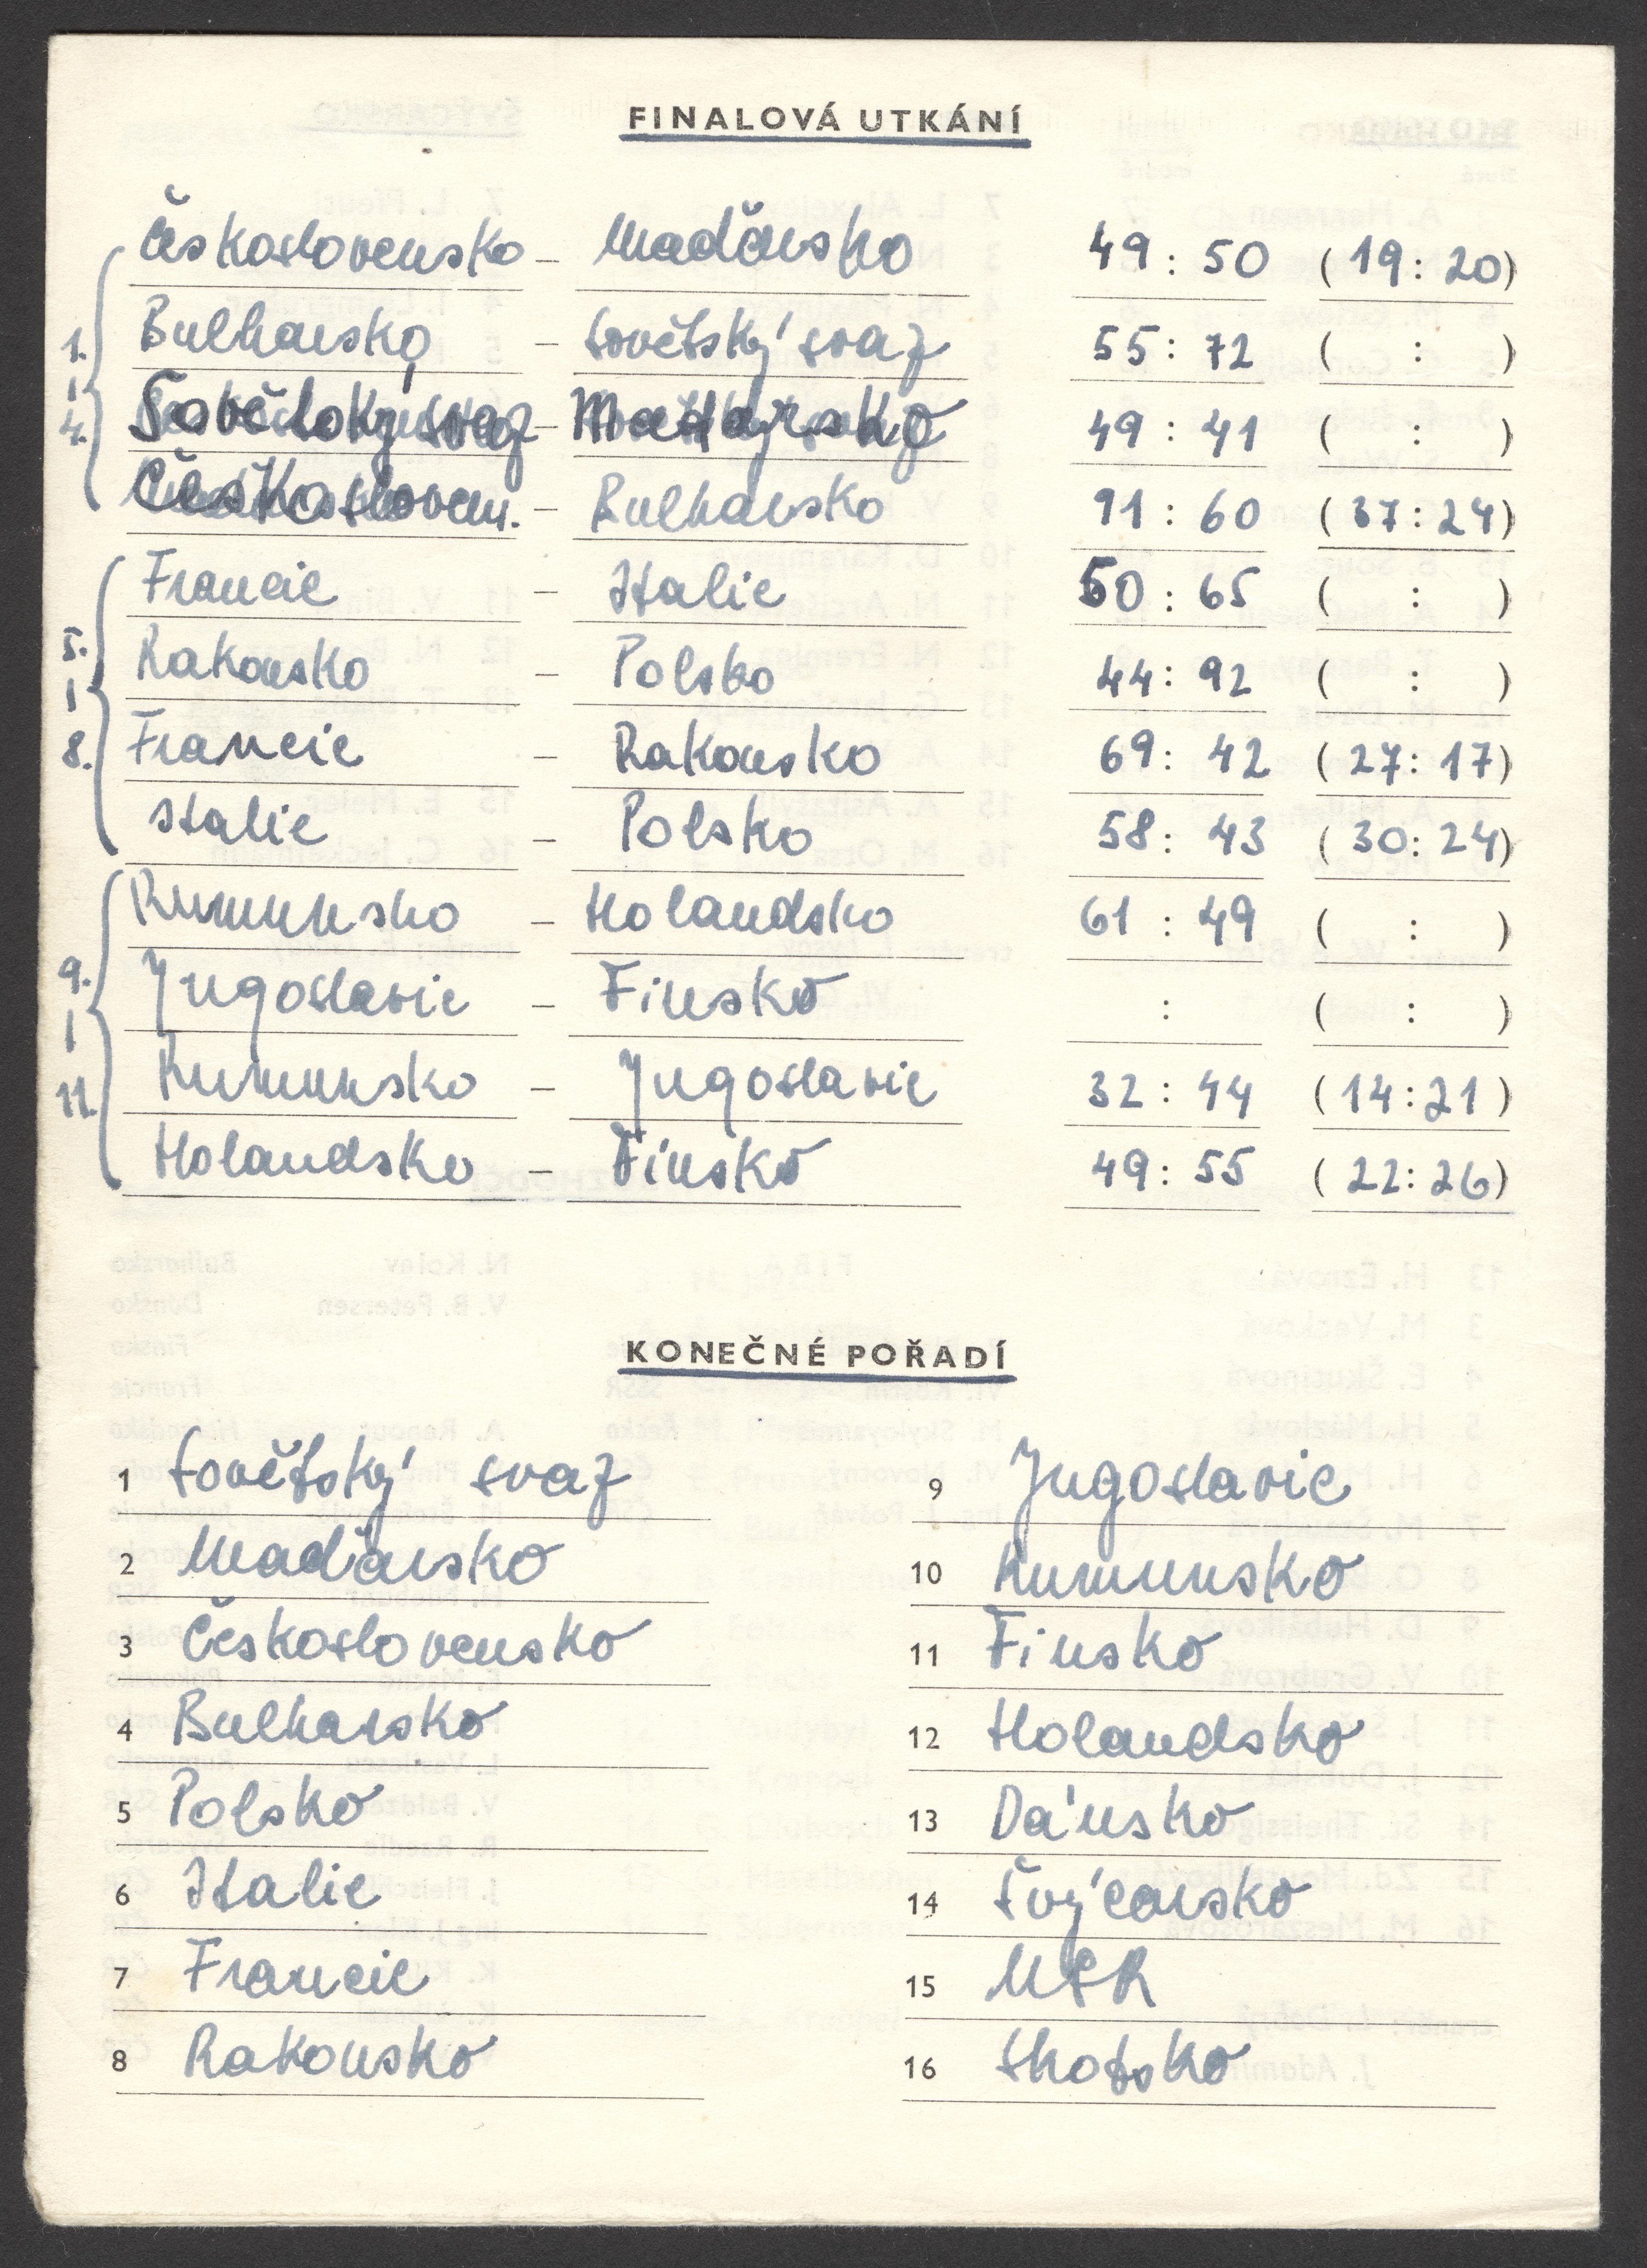 FINALOVÁ UTKÁNÍ
Československo – Maďarsko 49 : 50 ( 19 : 20 )
Bulharsko – Sovětský svaz 55 : 72 ( : )
1. | 4.
Sovětský svaz – Maďarsko 49 : 41 ( : )
Českosloven. – Bulharsko 91 : 60 ( 37 : 24 )
Francie – Italie 50 : 65 ( : )
5. | 8.
Rakousko – Polsko 44 : 92 ( : )
Francie – Rakousko 69 : 42 ( 27 : 17 )
Italie – Polsko 58 : 43 ( 30 : 24 )
Rumunsko – Holandsko 61 : 49 ( : )
9. | 11.
Jugoslavie – Finsko : ( : )
Rumunsko – Jugoslavie 32 : 44 ( 14 : 21 )
Holandsko – Finsko 49 : 55 ( 22 : 26 )
KONEČNÉ POŘADÍ
1 Sovětský svaz
2 Maďarsko
3 Československo
4 Bulharsko
5 Polsko
6 Italie
7 Francie
8 Rakousko
9 Jugoslavie
10 Rumunsko
11 Finsko
12 Holandsko
13 Dánsko
14 Švýcarsko
15 NSR
16 Skotsko